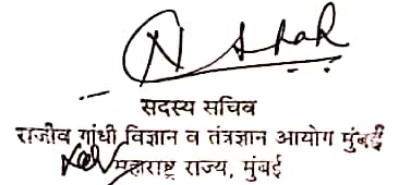 सदस्य सचिव
राजीव गांधी विज्ञान व तंत्रज्ञान आयोग मुंबई
महाराष्ट्र राज्य, मुंबई